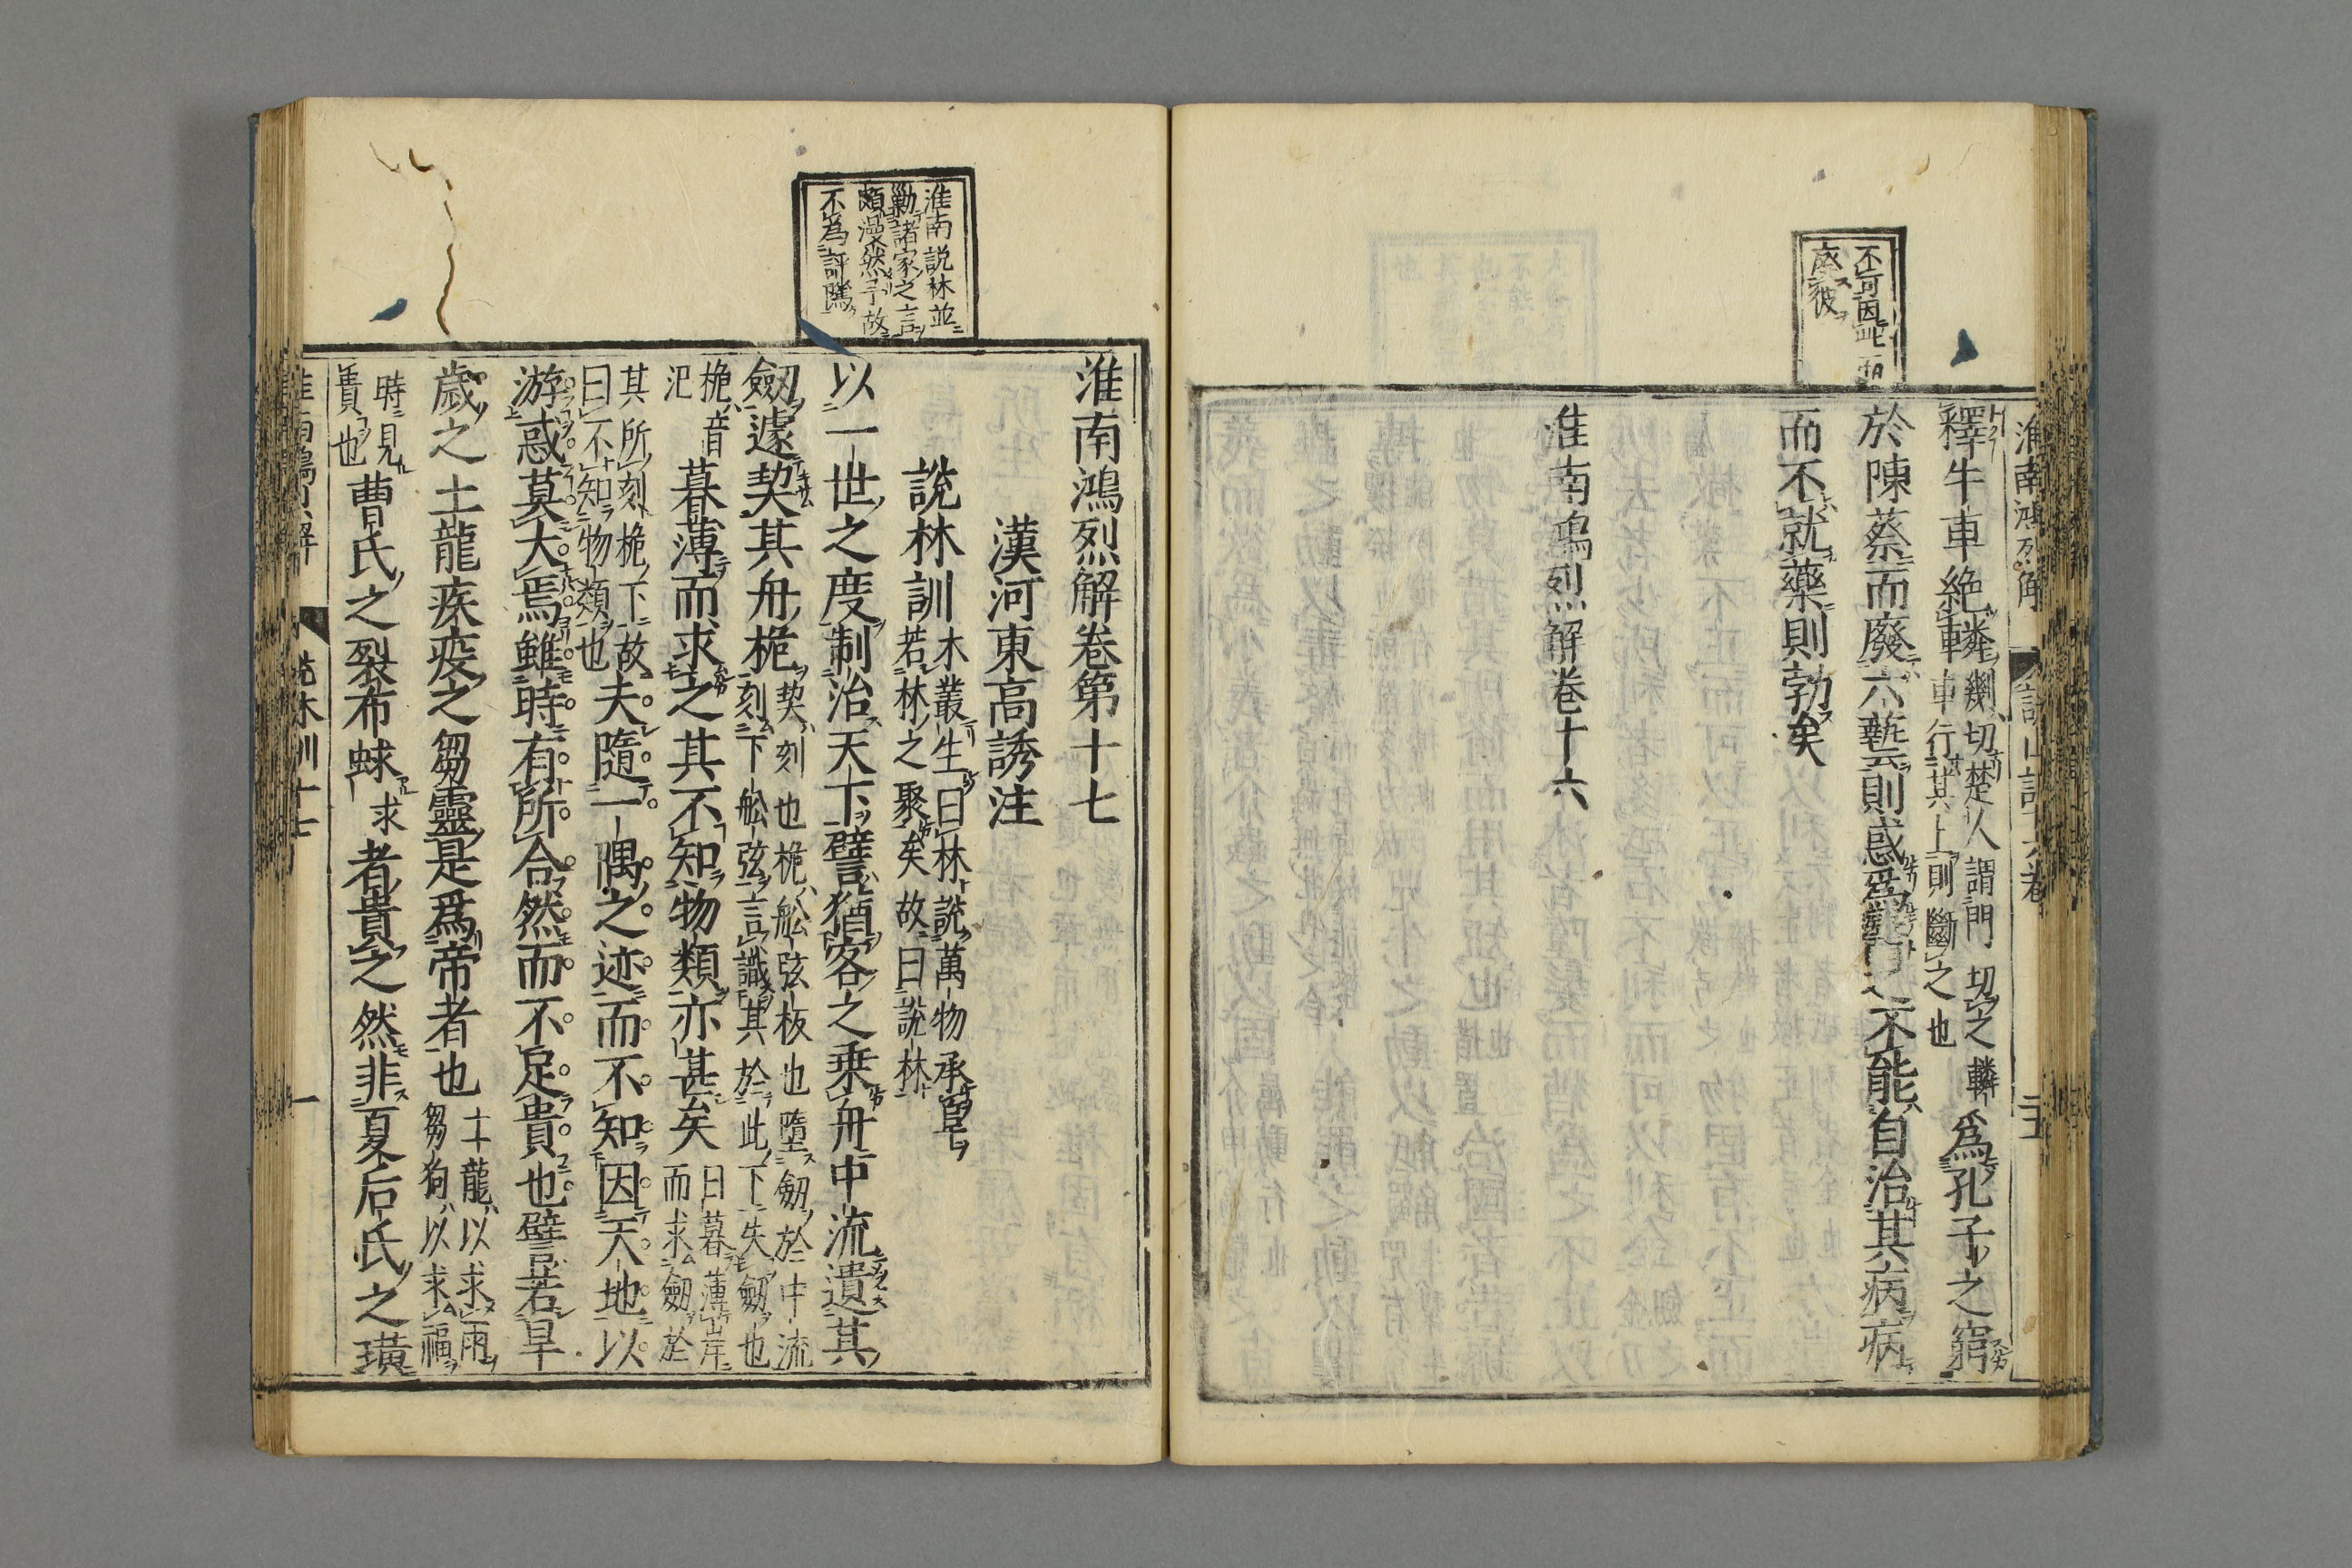 不可因此而
惑彼
釋牛車絶轔
車行其上則斷之也
爲孔子之窮
於陳蔡而廢六藝則惑爲醫之不能自治其病病
而不就藥則勃矣
淮南鴻烈解卷十六
淮南說林並
勦諸家之言
頗漫然予故
不為評隲
淮南鴻烈解卷第十七
漢河東高誘注
說林訓
木叢生曰林說萬物承阜
若林之聚矣故曰說林
以一世之度制治天下譬猶客之乘舟中流遺其
劒遽契其舟桅
契刻也桅舩弦板也墮劒於中流
刻下舩弦言識其於此下失劒也
桅音
汜
暮薄而求之其不知物類亦甚矣
日暮薄岸
而求劒於
其所刻桅下故
曰不知物類也
夫隨一隅之迹而不知因天地以
游惑莫大焉雖時有所合然而不足貴也譬若旱
歲之土龍疾疫之芻靈是爲帝者也
土龍以求雨
芻狗以求福
時見
貴也
曹氏之裂布蛷
求
者貴之然非夏后氏之璜
說林訓十七
一